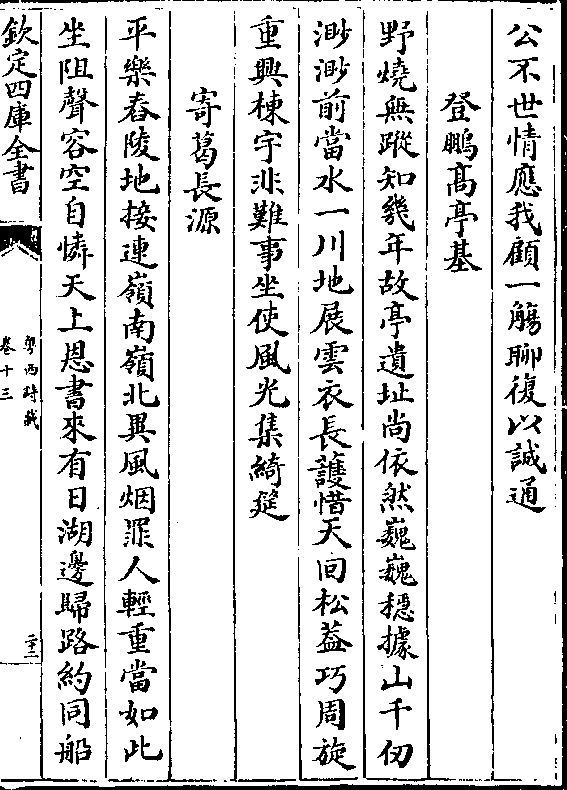 公不世情應我顧一觴聊復以誠通
登鵬髙亭基
野燒無蹤知幾年故亭遺址尚依然巍巍穏據山千仞
渺渺前當水一川地展雲衣長䕶惜天回松葢巧周旋
重興棟宇非難事坐使風光集綺筵
寄葛長源
平樂舂陵地接連嶺南嶺北異風烟罪人輕重當如此
坐阻聲容空自憐天上恩書來有日湖邊歸路約同船
欽定四庫全書
粤西詩載
卷十三
二十二